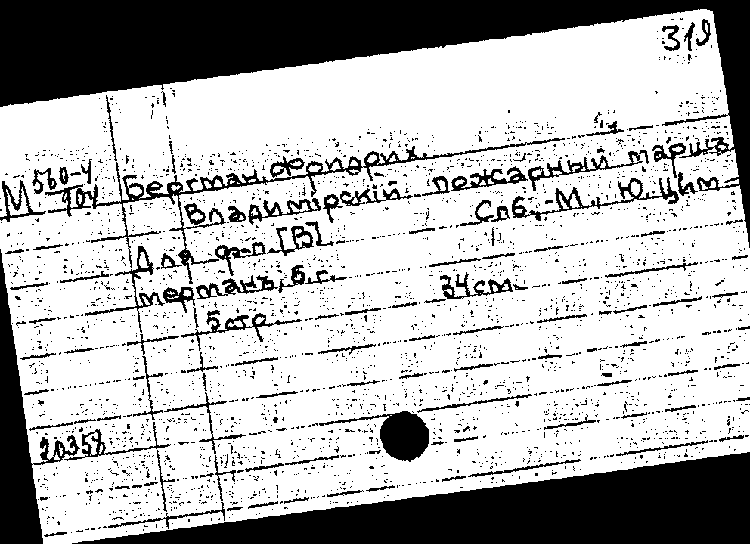 319
М 560-4/904
Бергман, Фридрих.
Владимірскій пожарный маршъ
Для ф-п. [B] Спб.,-М., Ю. Цим-
мерманъ, б.г.
5 стр. 34 см.
20358